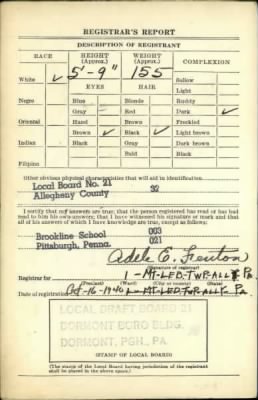 REGISTRAR'S REPORT
DESCRIPTION OF REGISTRANT
RACE HEIGHT (Approx.) WEIGHT (Approx.) COMPLEXION
White ✓ 5'-9" 155 Sallow
Light
EYES HAIR
Negro Blue Blonde Ruddy
Gray Red Dark ✓
Oriental Hazel Brown Freckled
Brown ✓ Black ✓ Light brown
Indian Black Gray Dark brown
Bald Black
Filipino
Other obvious physical characteristics that will aid in identification
Local Board No. 21 32
Allegheny County
I certify that my answers are true; that the person registered has read or has had
read to him his own answers; that I have witnessed his signature or mark and that
all of his answers of which I have knowledge are true, except as follows:
Brookline School 003
Pittsburgh, Penna. 021
Adele E. Fenton
(Signature of registrar)
Registrar for 1-MT-LEB-TWP-ALL Pa
(Precinct) (Ward) (City or county) (State)
Date of registration Oct-16-1940 1-MT-LEB-TWP-ALL-Pa
LOCAL DRAFT BOARD 21
DORMONT BORO BLDG.
DORMONT, PGH., PA.
(STAMP OF LOCAL BOARD)
(The stamp of the Local Board having jurisdiction of the registrant
shall be placed in the above space.)